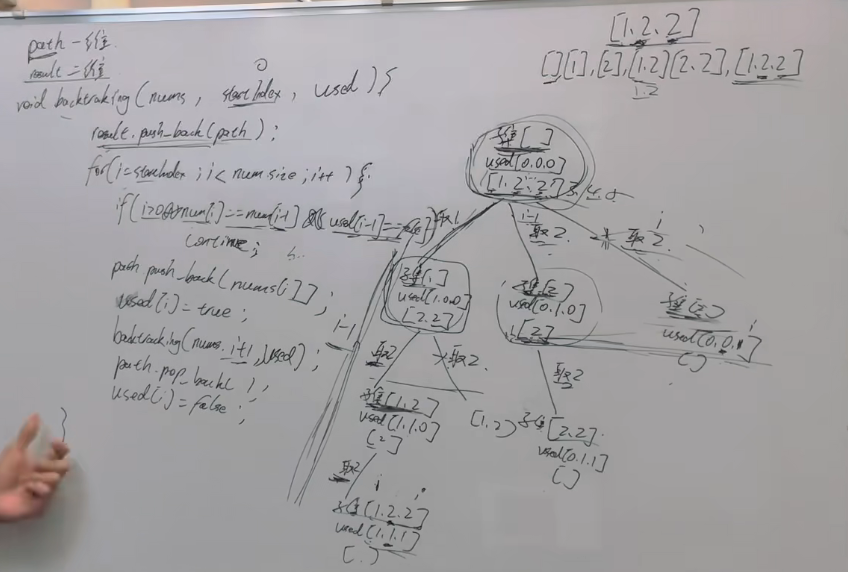 path 一维
result 二维
void backtraking(nums, startIndex, used){
result.push_back(path);
for(i=startIndex; i<num.size; i++){
if(i>0&&num[i]==num[i-1] && used[i-1]==false)
continue;
path.push_back(nums[i]);
used[i]=true;
backtraking(nums, i+1, used);
path.pop_back();
used[i]=false;
}
[1.2.2]
[][1],[2],[1.2][2.2],[1.2.2]
1.2
子集[ ]
used[0.0.0]
[1.2.2]
取1
i-1
取2
i
取2
子集[1]
used[1.0.0]
[2.2]
子集[2]
used[0.1.0]
[2]
子集[2]
used[0.0.1]
[]
i-1
取2
取2
取2
子集[1,2]
used[1.1.0]
[2]
[1,2]
子集[2.2]
used[0.1.1]
[]
取2
子集[1.2.2]
used[1.1.1]
[ ]